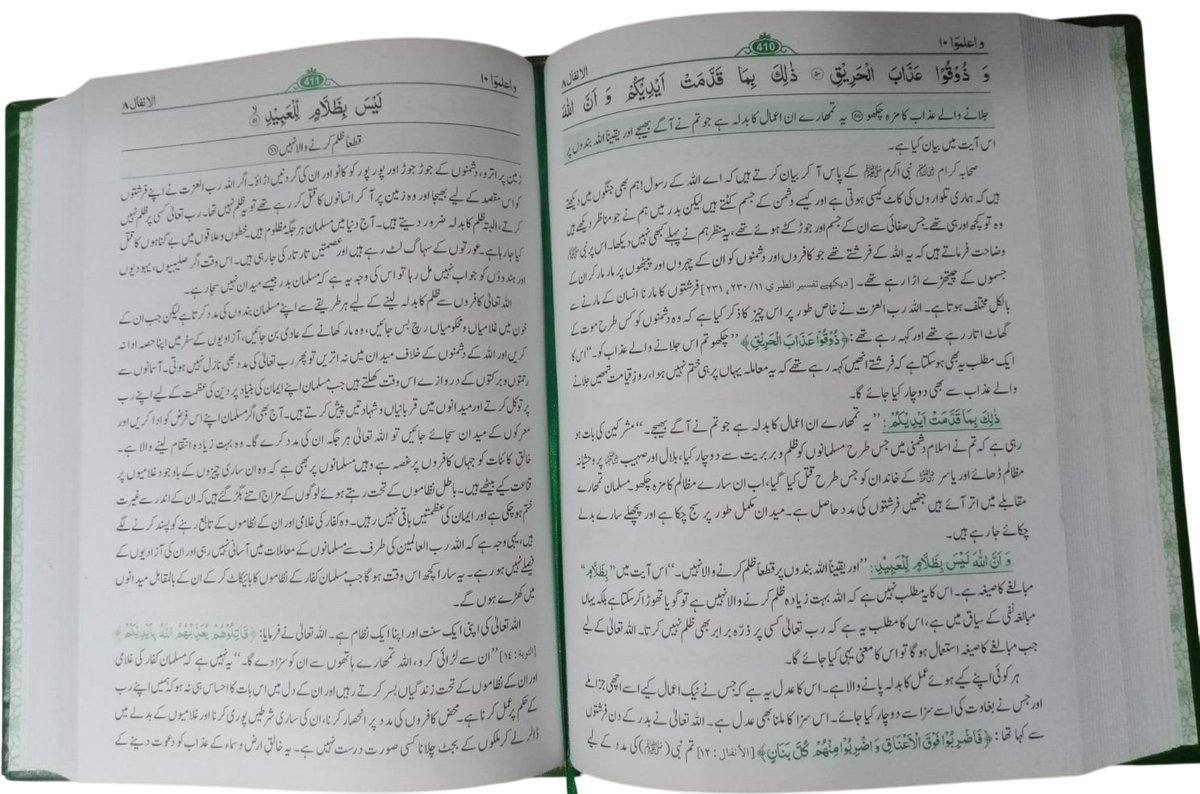 واعلموا ۱۰
410
الانفال ۸
وَ ذُوْقُوْا عَذَابَ الْحَرِيْقِ ۝۵۰ ذٰلِكَ بِمَا قَدَّمَتْ اَيْدِيْكُمْ وَ اَنَّ اللّٰهَ
جلانے والے عذاب کا مزہ چکھو ۝ یہ تمھارے ان اعمال کا بدلہ ہے جو تم نے آگے بھیجے اور یقیناً اللہ بندوں پر
اس آیت میں بیان کیا ہے۔
صحابہ کرام ﷢ نبی اکرم ﷺ کے پاس آ کر بیان کرتے ہیں کہ اے اللہ کے رسول! ہم بھی جنگوں میں دیکھتے
ہیں کہ ہماری تلواروں کی کاٹ کیسی ہوتی ہے اور کیسے دشمن کے جسم کٹتے ہیں لیکن بدر میں ہم نے جو مناظر دیکھے ہیں
وہ تو کچھ اور ہی تھے جس صفائی سے ان کے جسم اور جوڑ کٹے ہوئے تھے، یہ منظر ہم نے پہلے کبھی نہیں دیکھا۔ اس پر نبی ﷺ
وضاحت فرماتے ہیں کہ یہ اللہ کے فرشتے تھے جو کافروں اور دشمنوں کو ان کے چہروں اور پیٹھوں پر مار مار کر ان کے
جسموں کے چیتھڑے اڑا رہے تھے۔ [دیکھے تفسیر الطبري ۲۳۰/۱۱، ۲۳۱] فرشتوں کا مارنا انسان کے مارنے سے
بالکل مختلف ہوتا ہے۔ اللہ رب العزت نے خاص طور پر اس چیز کا ذکر کیا ہے کہ وہ دشمنوں کو کس طرح موت کے
گھاٹ اتار رہے تھے اور کہہ رہے تھے: ﴿ذُوْقُوْا عَذَابَ الْحَرِيْقِ﴾ ’’چکھو تم اس جلانے والے عذاب کو۔‘‘ اس کا
ایک مطلب یہ بھی ہو سکتا ہے کہ فرشتے انھیں کہہ رہے تھے کہ یہ معاملہ یہاں پر ہی ختم نہیں ہوا، روزِ قیامت تمھیں جلانے
والے عذاب سے بھی دوچار کیا جائے گا۔
ذٰلِكَ بِمَا قَدَّمَتْ اَيْدِيْكُمْ: ’’یہ تمھارے ان اعمال کا بدلہ ہے جو تم نے آگے بھیجے۔‘‘ مشرکین کی بات ہو
رہی ہے کہ تم نے اسلام دشمنی میں جس طرح مسلمانوں کو ظلم و بربریت سے دوچار کیا، بلال اور صہیب ﷠ پر وحشیانہ
مظالم ڈھائے اور یاسر ﷜ کے خاندان کو جس طرح قتل کیا گیا، اب ان سارے مظالم کا مزہ چکھو۔ مسلمان تمھارے
مقابلے میں اتر آئے ہیں جنھیں فرشتوں کی مدد حاصل ہے۔ میدان مکمل طور پر سج چکا ہے اور پچھلے سارے بدلے
چکائے جا رہے ہیں۔
وَ اَنَّ اللّٰهَ لَيْسَ بِظَلَّامٍ لِّلْعَبِيْدِ: ’’اور یقیناً اللہ بندوں پر قطعاً ظلم کرنے والا نہیں۔‘‘ اس آیت میں ’’بِظَلَّامٍ‘‘
مبالغے کا صیغہ ہے۔ اس کا یہ مطلب نہیں ہے کہ اللہ بہت زیادہ ظلم کرنے والا نہیں ہے تو گویا تھوڑا کر سکتا ہے بلکہ یہاں
مبالغہ نفی کے سیاق میں ہے، اس کا مطلب یہ ہے کہ رب تعالیٰ کسی پر ذرّہ برابر بھی ظلم نہیں کرتا۔ اللہ تعالیٰ کے لیے
جب مبالغے کا صیغہ استعمال ہو گا تو اس کا معنی یہی کیا جائے گا۔
ہر کوئی اپنے کیے ہوئے عمل کا بدلہ پانے والا ہے۔ اس کا عدل یہ ہے کہ جس نے نیک اعمال کیے اسے اچھی جزا ملے
اور جس نے بغاوت کی اسے سزا سے دوچار کیا جائے۔ اس سزا کا ملنا بھی عدل ہے۔ اللہ تعالیٰ نے بدر کے دن فرشتوں
سے کہا تھا: ﴿فَاضْرِبُوْا فَوْقَ الْاَعْنَاقِ وَ اضْرِبُوْا مِنْهُمْ كُلَّ بَنَانٍ﴾ [الأنفال: ۱۲] تم نبی (ﷺ) کی مدد کے لیے
واعلموا ۱۰
411
الانفال ۸
لَيْسَ بِظَلَّامٍ لِّلْعَبِيْدِ ۝۵۱
قطعاً ظلم کرنے والا نہیں ۝۵۱
زمین پر اترو، دشمنوں کے جوڑ جوڑ اور پور پور کو کاٹو اور ان کی گردنیں اڑاؤ۔ اگر اللہ رب العزت نے اپنے فرشتوں
کو اس مقصد کے لیے بھیجا اور وہ زمین پر آ کر انسانوں کا قتل کر رہے تھے تو یہ ظلم نہیں تھا۔ رب تعالیٰ کسی پر ظلم نہیں
کرتے، البتہ ظلم کا بدلہ ضرور دیتے ہیں۔ آج دنیا میں مسلمان ہر جگہ مظلوم ہیں۔ خطوں و علاقوں میں بے گناہوں کا قتل
کیا جا رہا ہے۔ عورتوں کے سہاگ لٹ رہے ہیں اور عصمتیں تار تار کی جا رہی ہیں۔ اس وقت اگر صلیبیوں، یہودیوں
اور ہندوؤں کو جواب نہیں مل رہا تو اس کی وجہ یہ ہے کہ مسلمان بدر جیسے میدان نہیں سجا رہے۔
اللہ تعالیٰ کافروں سے ظلم کا بدلہ لینے کے لیے ہر طریقے سے اپنے مسلمان بندوں کی مدد کرتا ہے لیکن جب ان کے
خون میں غلامیاں و محکومیاں رچ بس جائیں، وہ مار کھانے کے عادی بن جائیں، آزادیوں کے سفر میں اپنا حصہ ادا نہ
کریں اور اللہ کے دشمنوں کے خلاف میدان میں نہ اتریں تو پھر رب تعالیٰ کی مدد بھی نازل نہیں ہوتی۔ آسمانوں سے
رحمتوں و برکتوں کے دروازے اس وقت کھلتے ہیں جب مسلمان اپنے ایمان کی بنیاد پر دین کی عظمت کے لیے اپنے رب
پر توکل کرتے اور میدانوں میں قربانیاں و شہادتیں پیش کرتے ہیں۔ آج بھی اگر مسلمان اپنے اس فرض کو ادا کریں اور
معرکوں کے میدان سجائے جائیں تو اللہ تعالیٰ ہر جگہ ان کی مدد کرے گا۔ وہ بہت زیادہ انتقام لینے والا ہے۔
خالقِ کائنات کو جہاں کافروں پر غصہ ہے وہیں مسلمانوں پر بھی ہے کہ وہ ان ساری چیزوں کے باوجود غلامیوں پر
قناعت کیے بیٹھے ہیں۔ باطل نظاموں کے تحت رہتے ہوئے لوگوں کے مزاج اتنے بگڑ گئے ہیں کہ ان کے اندر سے غیرت
ختم ہو چکی ہے اور ایمان کی عظمتیں باقی نہیں رہیں۔ وہ کفار کی غلامی اور ان کے نظاموں کے تابع رہنے کو پسند کرنے لگے
ہیں، یہی وجہ ہے کہ اللہ رب العالمین کی طرف سے مسلمانوں کے معاملات میں آسانی نہیں رہی اور ان کی آزادیوں کے
فیصلے نہیں ہو رہے۔ یہ سارا کچھ اس وقت ہو گا جب مسلمان کفار کے نظاموں کا بائیکاٹ کر کے ان کے بالمقابل میدانوں
میں کھڑے ہوں گے۔
اللہ تعالیٰ کی اپنی ایک سنت اور اپنا ایک نظام ہے۔ اللہ تعالیٰ نے فرمایا: ﴿قَاتِلُوْهُمْ يُعَذِّبْهُمُ اللّٰهُ بِاَيْدِيْكُمْ﴾
[التوبة: ۱۴] ’’ان سے لڑائی کرو، اللہ تمھارے ہاتھوں سے ان کو سزا دے گا۔‘‘ یہ نہیں ہے کہ مسلمان کفار کی غلامی
اور ان کے نظاموں کے تحت زندگیاں بسر کرتے رہیں اور ان کے دل میں اس بات کا احساس ہی نہ ہو کہ ہمیں اپنے رب
کے حکم پر عمل کرنا ہے۔ محض کافروں کی مدد پر انحصار کرنا، ان کی ساری شرطیں پوری کرنا اور غلامیوں کے بدلے میں
ڈالر لے کر ملکوں کے بجٹ چلانا کسی صورت درست نہیں ہے۔ یہ خالق ارض و سماء کے عذاب کو دعوت دینے کے